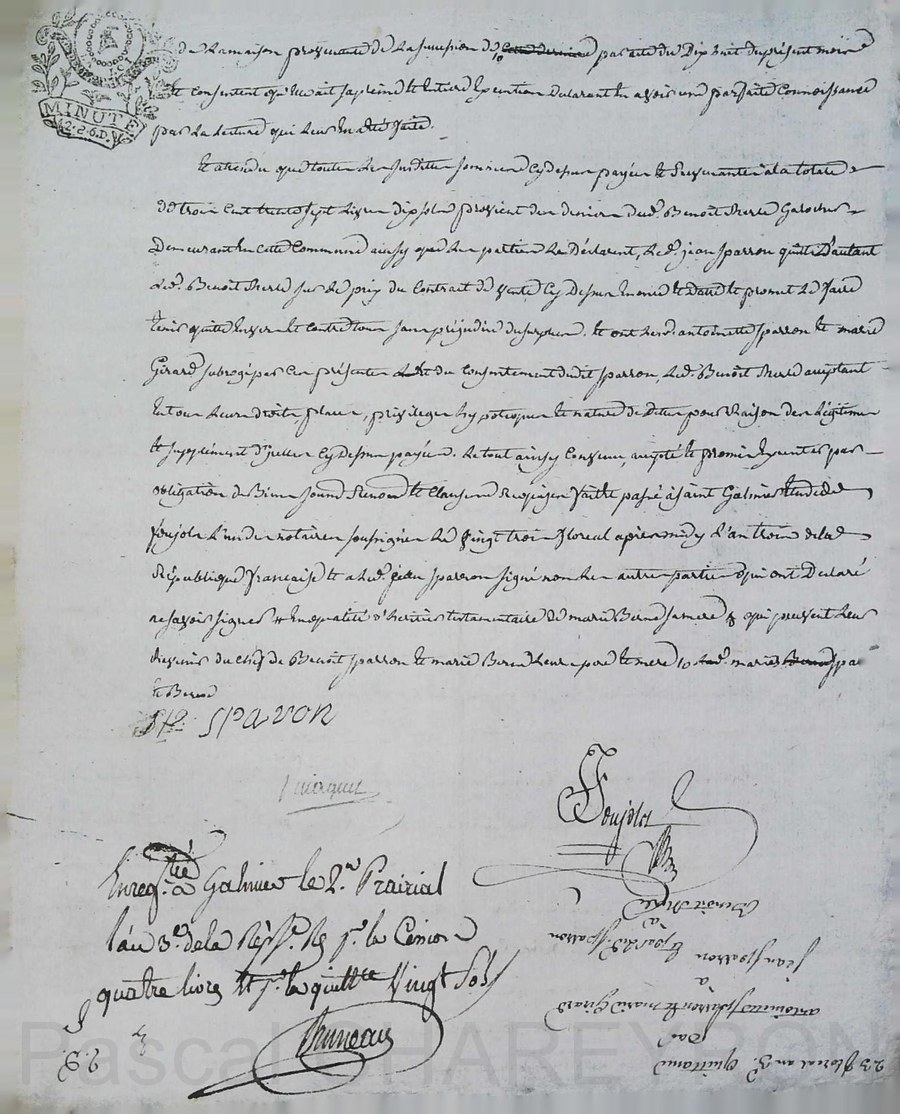 MINUTE
12.S.6.D.
de la maison provenante de la succession de 10 cette derniere par acte du Dix huit du present mois
et consentent qu'il ait sa pleine et Entiere Execution Declarant En avoir une parfaite Connoissance
par la lecture qui leur En a été faite.
Et attendu que toutes les susdittes sommes cy dessus payées et Revenantes à la totale
de trois Cent trente sept livres dix sols provient des deniers dud. Benoît
Demeurant En cette Commune ainsy que les parties le Déclarent, led. jean Sparron quitte D'autant
led. Benoît sur le prix du Contrat de vente cy Dessus Enoncé et Daté et promet le faire
tenir quitte Envers et Contre tous sans préjudice du surplus. Et ont lesd. antoinette Sparron et marie
Girard subrogé par Ces présentes du Consentement dudit Sparron, led. Benoît acceptant
En tous leurs droits, places, privileges hypoteques et nature de dettes pour Raison des légitimes
et supplément d'jcelles cy dessus payées. Le tout ainsy Convenu, accepté et promis Executer par
obligation de Biens Soumis Renoncé et Clauses Requises faitte passé à Saint Galmier Etude de
Poujols L'un des notaires soussignés Le vingt trois floreal après midy L'an trois de la
République française et a led. jean Sparron signé non les autres parties qui ont Declaré
ne savoir signer # En qualité d'heritier testamentaire de marie Bernd sa mere & qui peuvent leur
Revenir du chef de Benoît Sparron et marie Bernd leurs pere et mere 10 marie Bernd
et Bernd
SPARON
Poujols
Enreg.tré a Galmier le 2.e Prairial
l'an 3.e de la Rép.e R p.r la Cession
quatre livres et p.r la quittce Vingt Sols
Bruneau
Benoît
à
jean Sparron
à
antoinette Sparron et marie Girard
par
23 floreal an 3. Quittance
Pascal CHAREYRON